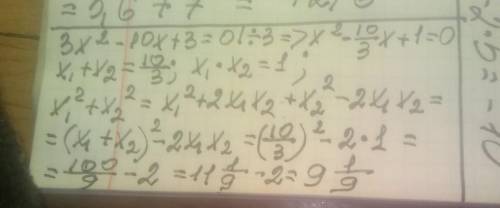 = 9,6 + 7 =
3x² - 10x + 3 = 0 | ÷ 3 => x² - 10/3 x + 1 = 0
x₁ + x₂ = 10/3; x₁ · x₂ = 1;
x₁² + x₂² = x₁² + 2x₁x₂ + x₂² - 2x₁x₂ =
= (x₁ + x₂)² - 2x₁x₂ = (10/3)² - 2 · 1 =
= 100/9 - 2 = 11 1/9 - 2 = 9 1/9